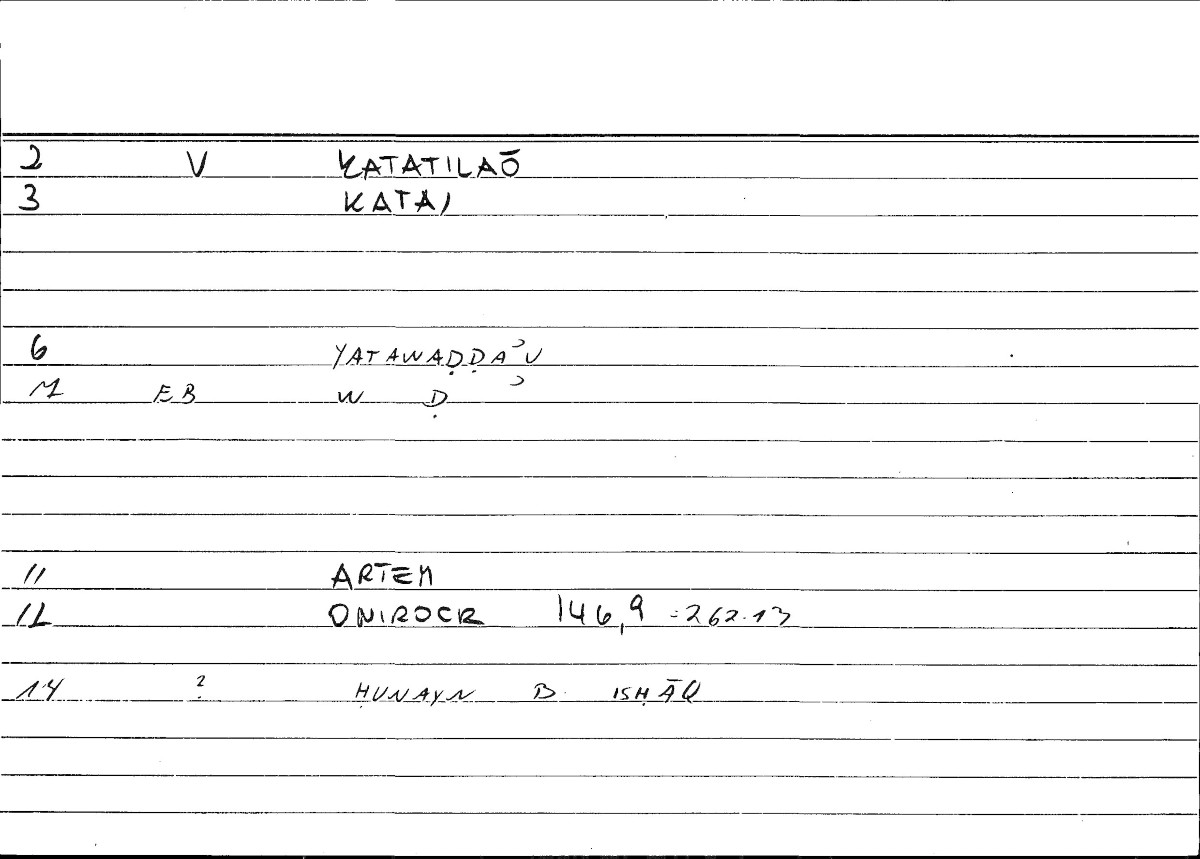 2 V KATATILAŌ
3 KATAI
6 YATAWAḌḌAʾU
EB W Ḍ ʾ
11 ARTEM
12 ONIROCR 146,9 = 262.13
14 ? ḤUNAYN B. ISḤĀQ